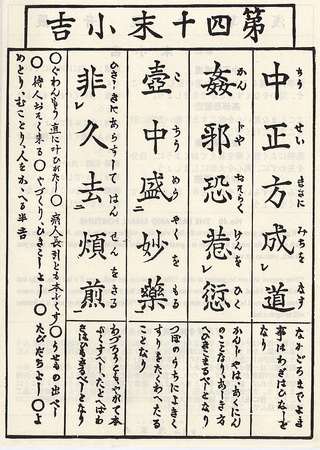 第四十末小吉
中正方成道
ちうせいまさにみちをなす
なかごろまでよき
事はわざはひなしと
なり
姦邪恐惹愆
かんじやおそらくけんをひく
かんじやは、あくにん
のことなり、あしき方
壺中盛妙藥
こちうめうやくをもる
つぼのうちによきく
すりをたくわへたる
ことなり
非久去煩煎
ひさしきにあらずしてはんせんをさる
わづらうとも、やがて本
ぷくすべし、たとへばわ
〇ぐわんもう 直に叶ひがたし〇病人長引とも本ぷくす〇うせもの出べし
〇待人おそく来る〇やづくり、ひきこしよし〇たびだちよし〇よ
めとり、むことり、人をかゝへる半吉